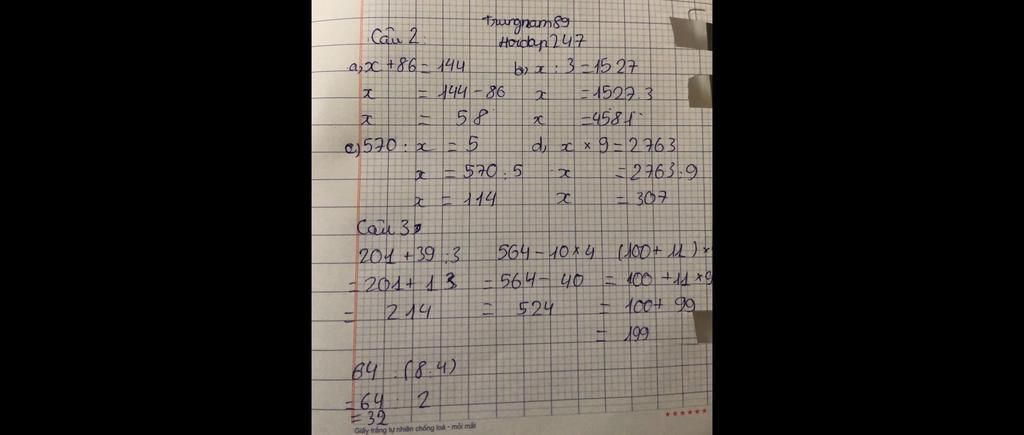 Trungnam89
Câu 2: Hoidap247
a, x + 86 = 144 b, x : 3 = 1527
x = 144 - 86 x = 1527.3
x = 58 x = 4581
c) 570 : x = 5 d, x × 9 = 2763
x = 570 : 5 x = 2763 : 9
x = 114 x = 307
Câu 3:
201 + 39 : 3 564 - 10 × 4 (100 + 11) ×
= 201 + 13 = 564 - 40 = 100 + 11 × 9
= 214 = 524 = 100 + 99
= 199
64 : (8 : 4)
= 64 : 2
= 32
Giấy trắng tự nhiên chống loá - mỏi mắt